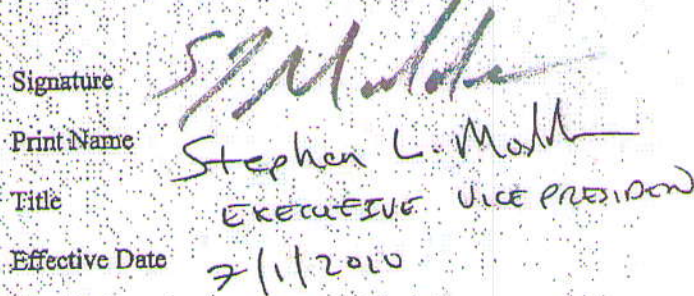 Signature
Print Name Stephen L.
Title EXECUTIVE VICE PRESIDENT
Effective Date 7/1/2010